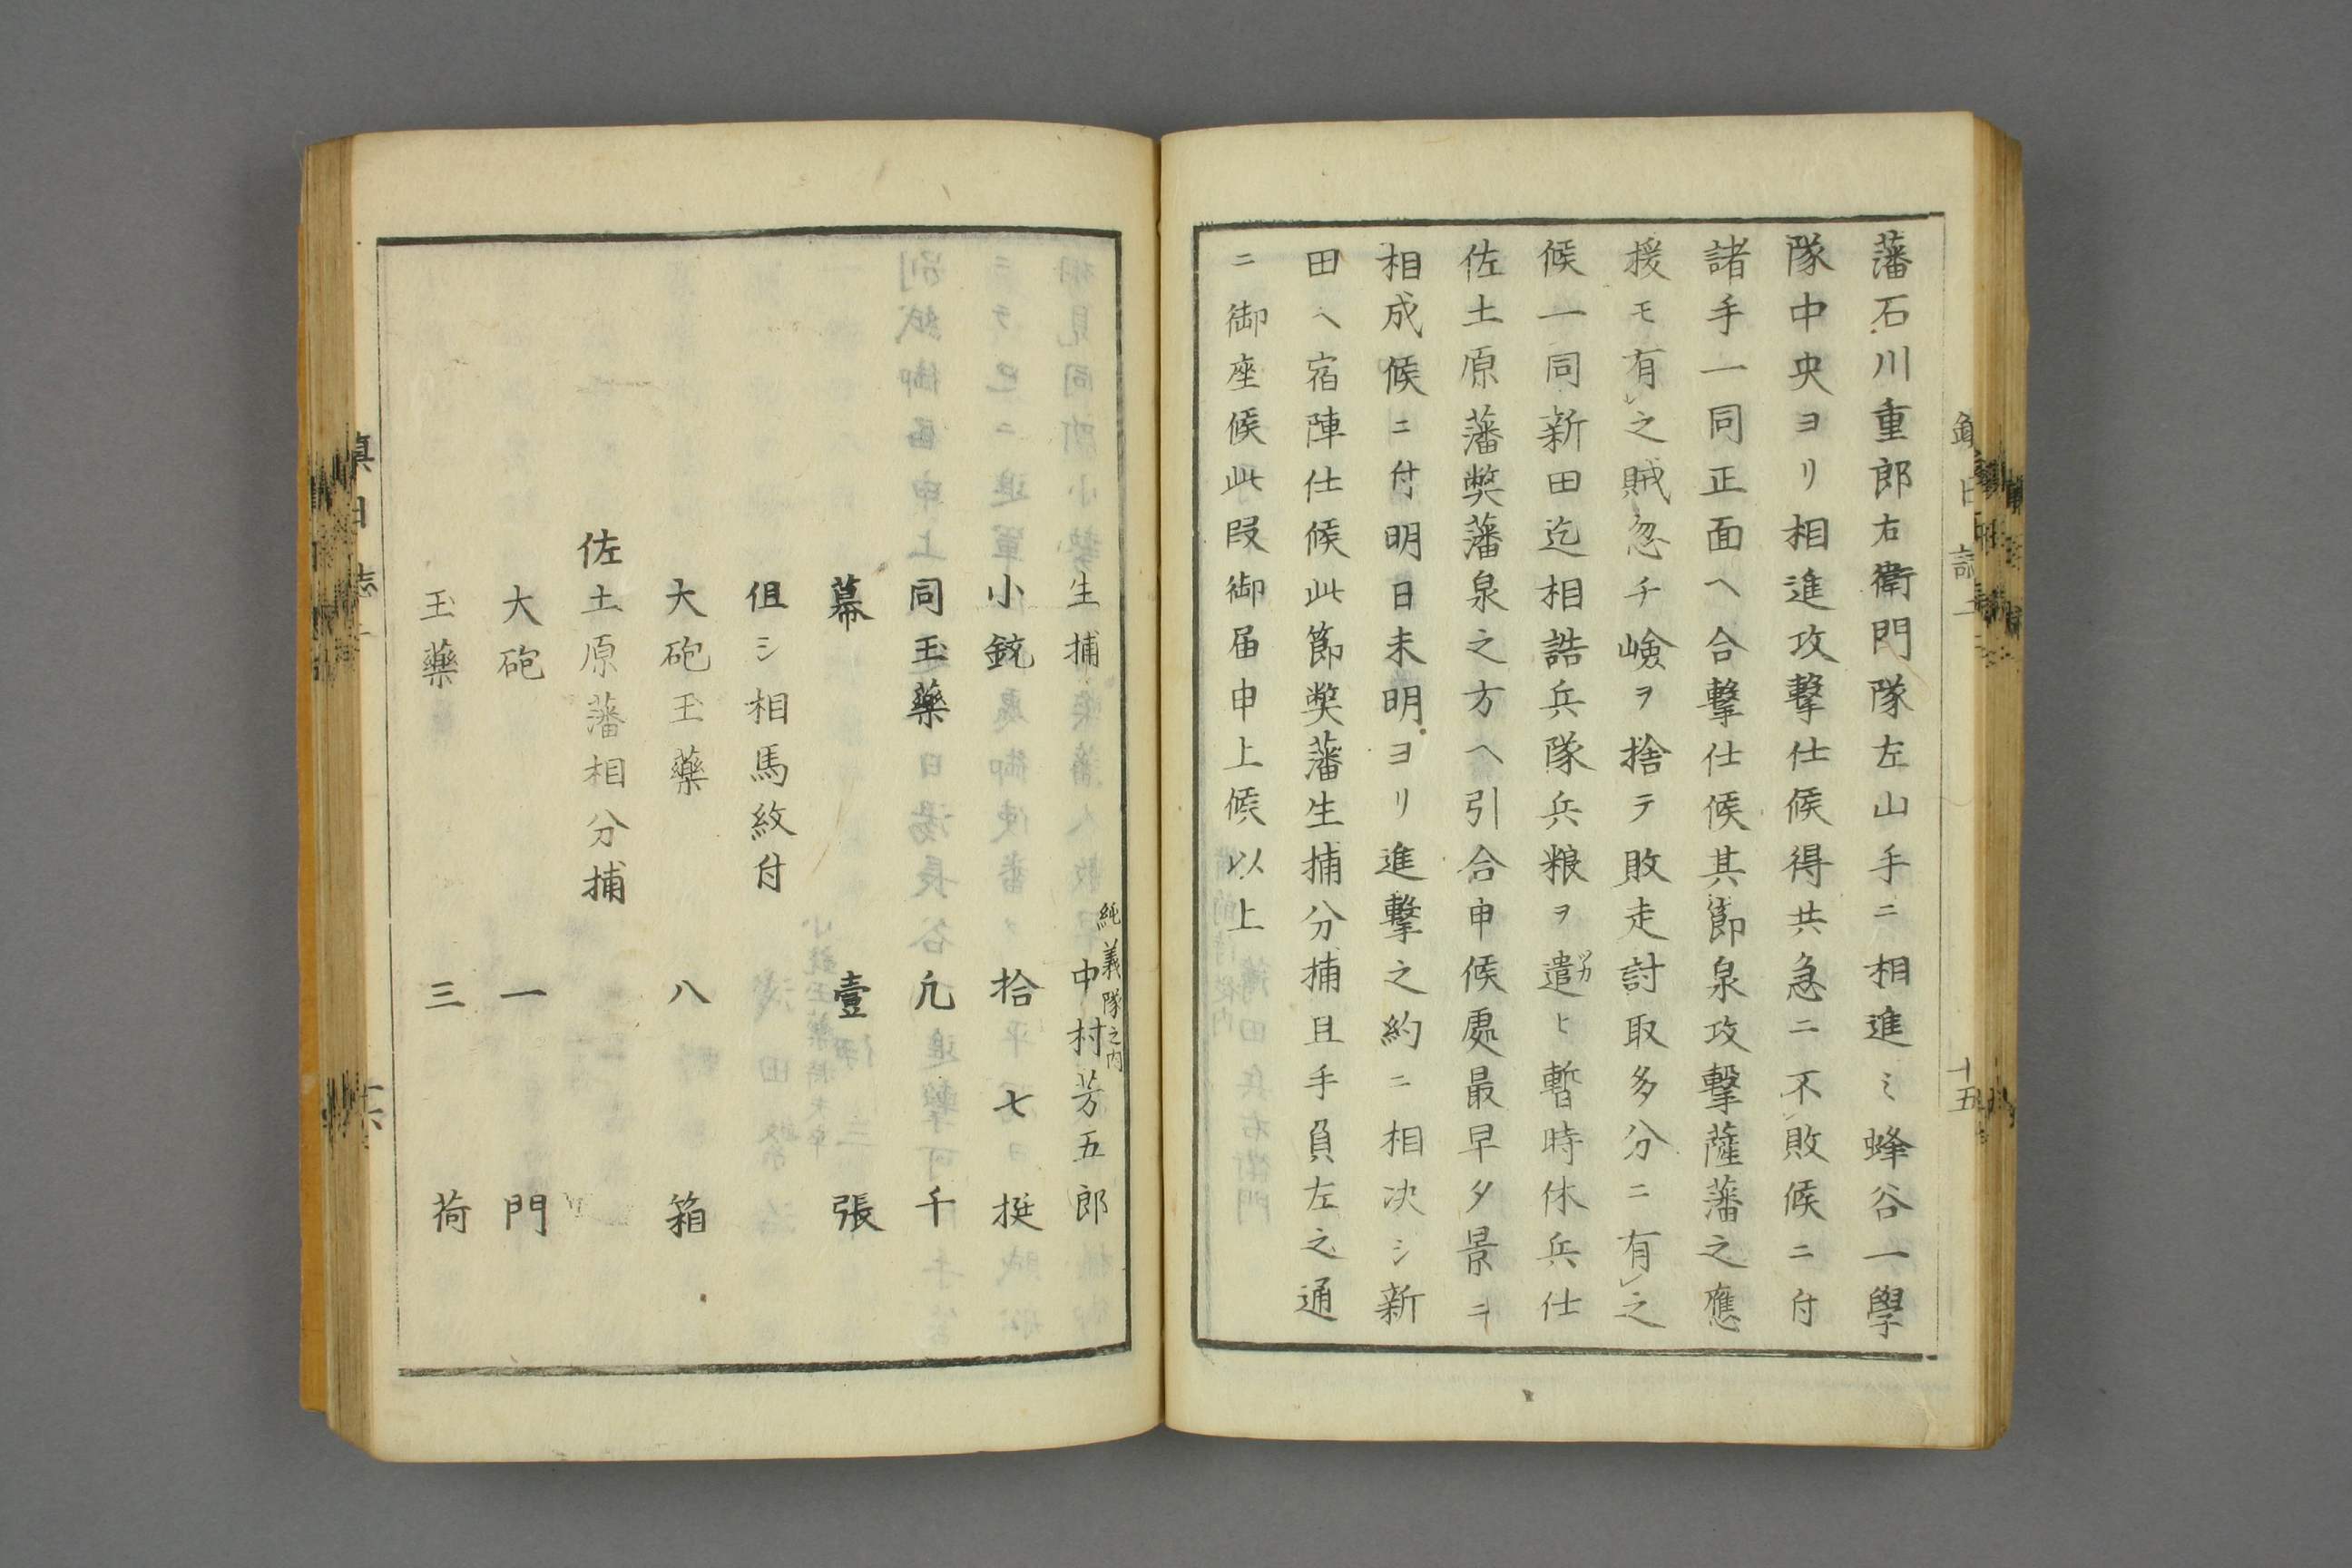 藩石川重郎右衛門隊左山手ニ相進ミ蜂谷一學
隊中央ヨリ相進攻撃仕候得共急ニ不敗候ニ付
諸手一同正面ヘ合撃仕候其節泉攻撃薩藩之應
援モ有レ之賊忽チ嶮ヲ捨テ敗走討取多分ニ有レ之
候一同新田迄相詰兵隊兵粮ヲ遣ヒ暫時休兵仕
佐土原藩弊藩泉之方ヘ引合申候處最早夕景ニ
相成候ニ付明日未明ヨリ進撃之約ニ相决シ新
田ヘ宿陣仕候此節弊藩生捕分捕且手負左之通
ニ御座候此段御届申上候以上
十五
生捕
純義隊之内
中村芳五郎
小銃 拾七挺
同玉藥 凡千
幕 壹張
但シ相馬紋付
大砲玉藥 八箱
佐土原藩相分捕
大砲 一門
玉藥 三荷